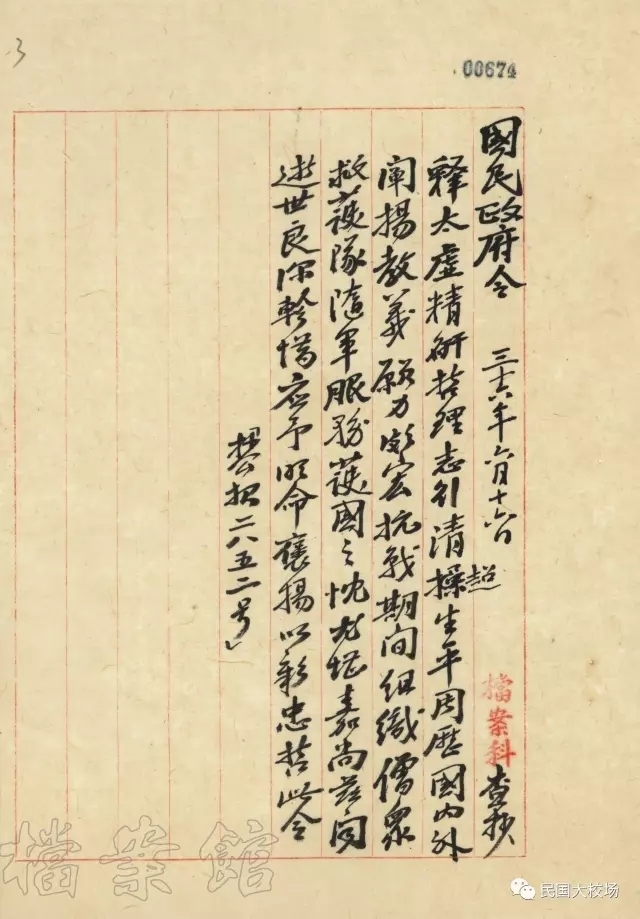 3
00674
國民政府令 三十六年六月十六日 檔案科查抄
釋太虛精研哲理志行清操生平周歷國內外
超
闡揚教義願力頗宏抗戰期間組織僧眾
救護隊隨軍服務護國之忱尤堪嘉尚茲聞
逝世良深軫惜应予明命褒揚以彰忠哲此令
公报二八五二号」
檔案館
民国大校场